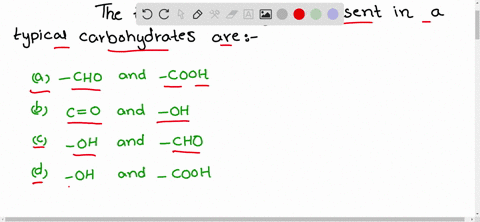 The sent in a
typical carbohydrates are:-
(a) -CHO and -COOH
(b) C=O and -OH
(c) -OH and -CHO
(d) -OH and -COOH